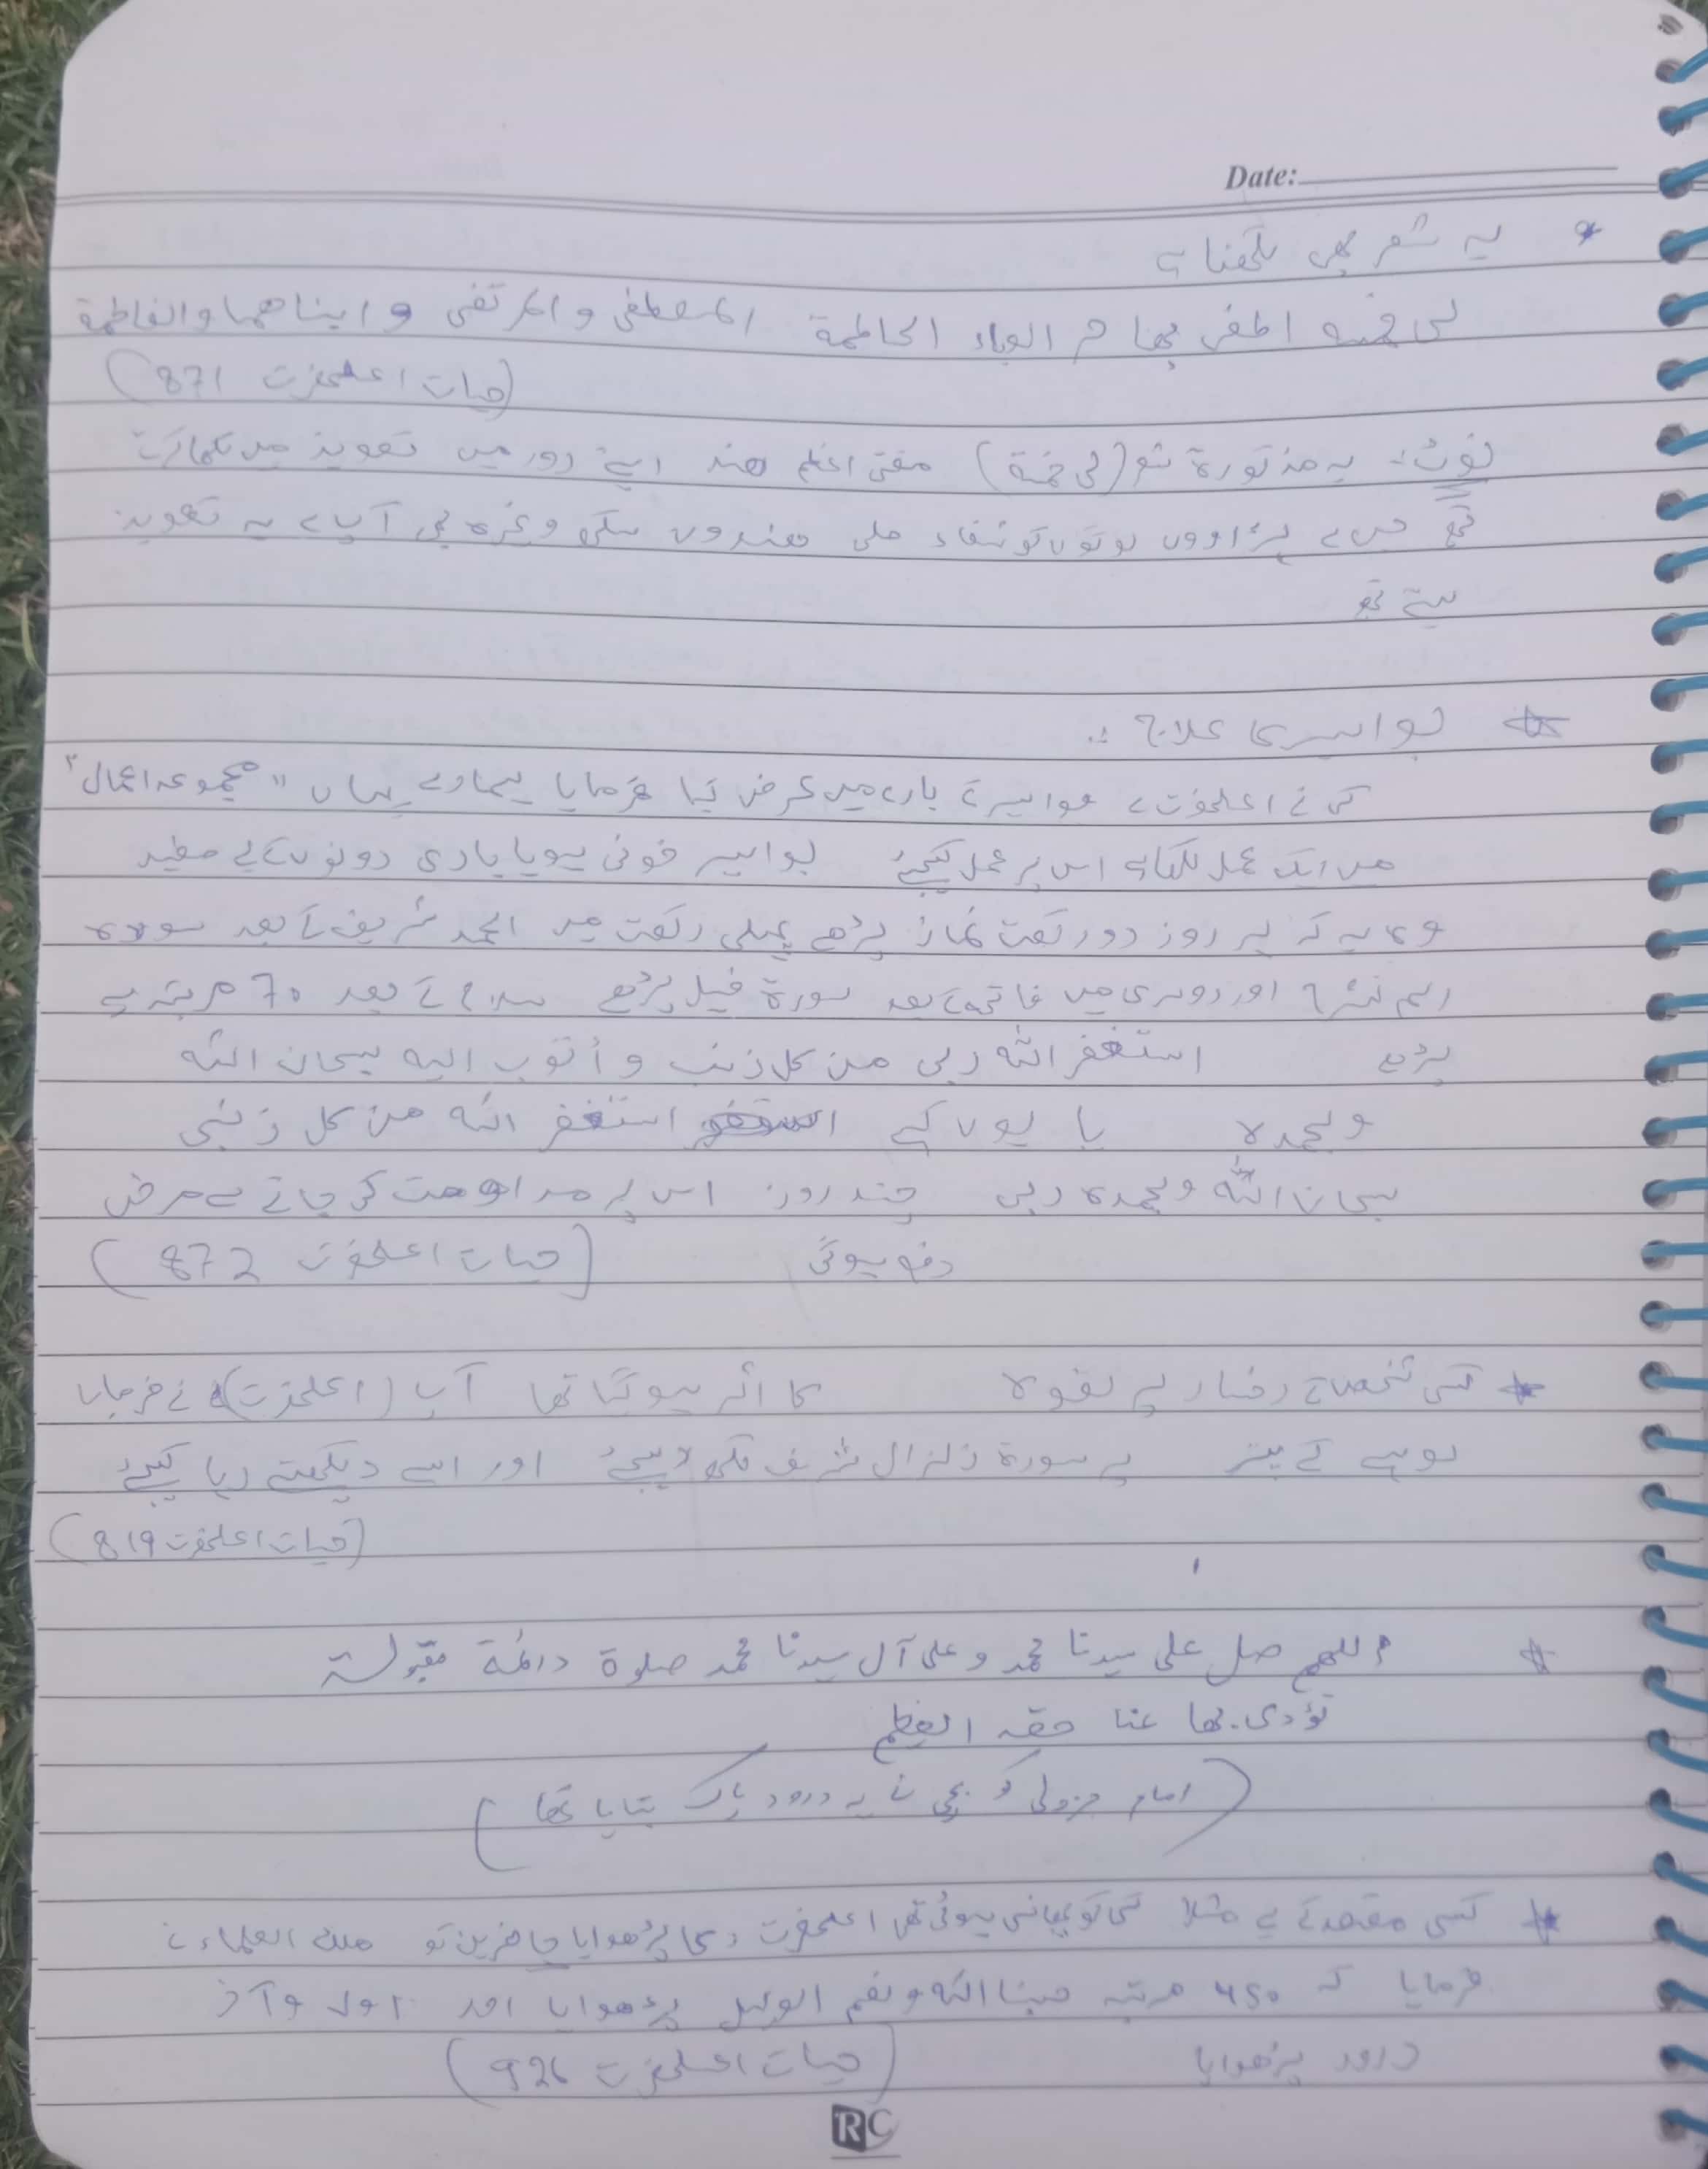 Date:
* یہ شعر بھی لکھنا ہے
لی خمسة اطفی بھا حر الوباء الحاطمة المصطفی و المرتضی و ابناھما والفاطمة
(حیات اعلحضرت 871)
نوٹ:- یہ مذکورہ شعر (لی خمسة) مفتی اعظم ھند اپنے دور میں تعویذ میں لکھا کرتے
تھے جس سے ہزاروں لوگوں کو شفاء ملی ھندوں سکی وغیرہ بھی آپ سے یہ تعویذ
لیتے تھے
* بواسیر کا علاج :.
کسی نے اعلحضرت سے بواسیر کے بارے میں عرض کیا فرمایا ہمارے یہاں "مجموعہ اعمال"
میں ایک عمل لکھا ہے اس پر عمل کیجئے بواسیر خونی ہو یا بادی دونوں کے لیے مفید
وہ یہ کہ ہر روز دو رکعت نماز پڑھے پہلی رکعت میں الحمد شریف کے بعد سورہ
الم نشرح اور دوسری میں فاتحہ کے بعد سورة فیل پڑھے سلام کے بعد 70 مرتبہ یہ
پڑھے استغفر اللہ ربی من کل ذنب و أتوب الیه سبحان اللہ
وبحمدہ یا یوں کہے استغفر اللہ من کل ذنبی
سبحان اللہ وبحمدہ ربی چند روز اس پر مداومت کی جائے مرض
دفع ہوگئی (حیات اعلحضرت 872)
* کسی شخص کے رخسار پے لقوہ کا اثر ہوگیا تھا آپ (اعلحضرت) نے فرمایا
لوہے کے پتر پے سورة زلزال شریف لکھ لیجئے اور اسے دیکھتے رہا کیجئے
(حیات اعلحضرت 819)
* اللھم صل علی سیدنا محمد و علی آل سیدنا محمد صلوة دائمة مقبولة
تؤدی بھا عنا حقہ العظیم
(امام جزولی کو بچی نے یہ درود پاک بتایا تھا)
* کسی مقصد کے لیے مثلا کسی کو پھانسی ہوئی تھی اعلحضرت دعا پڑھوایا حاضرین کو ملک العلماء نے
فرمایا کہ 450 مرتبہ حسبنا اللہ ونعم الوکیل پڑھوایا اور اول وآخر
درود پڑھوایا (حیات اعلحضرت 926)
RC